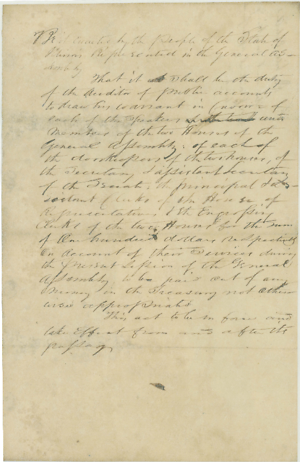 Be it enacted by the people of the State of
Illinois Represented in the General As-
sembly
That it shall be the duty
of the Auditor of public accounts
to draw his warrant in favour of
each of the Speakers and
Members of the two Houses of the
General Assembly, of each of
the doorkeepers of the two houses, of
the Secretary & assistant secretary
of the Senate, the Principal & as
sistant Clerks of the House of
Representatives & the Engrossing
Clerks of the two Houses for the sum
of One hundred dollars respectively
on account of their Services during
the present Session of the General
Assembly to be paid out of any
Money in the Treasury not other
wise appropriated.
This act to be in force and
take effect from and after its
passage